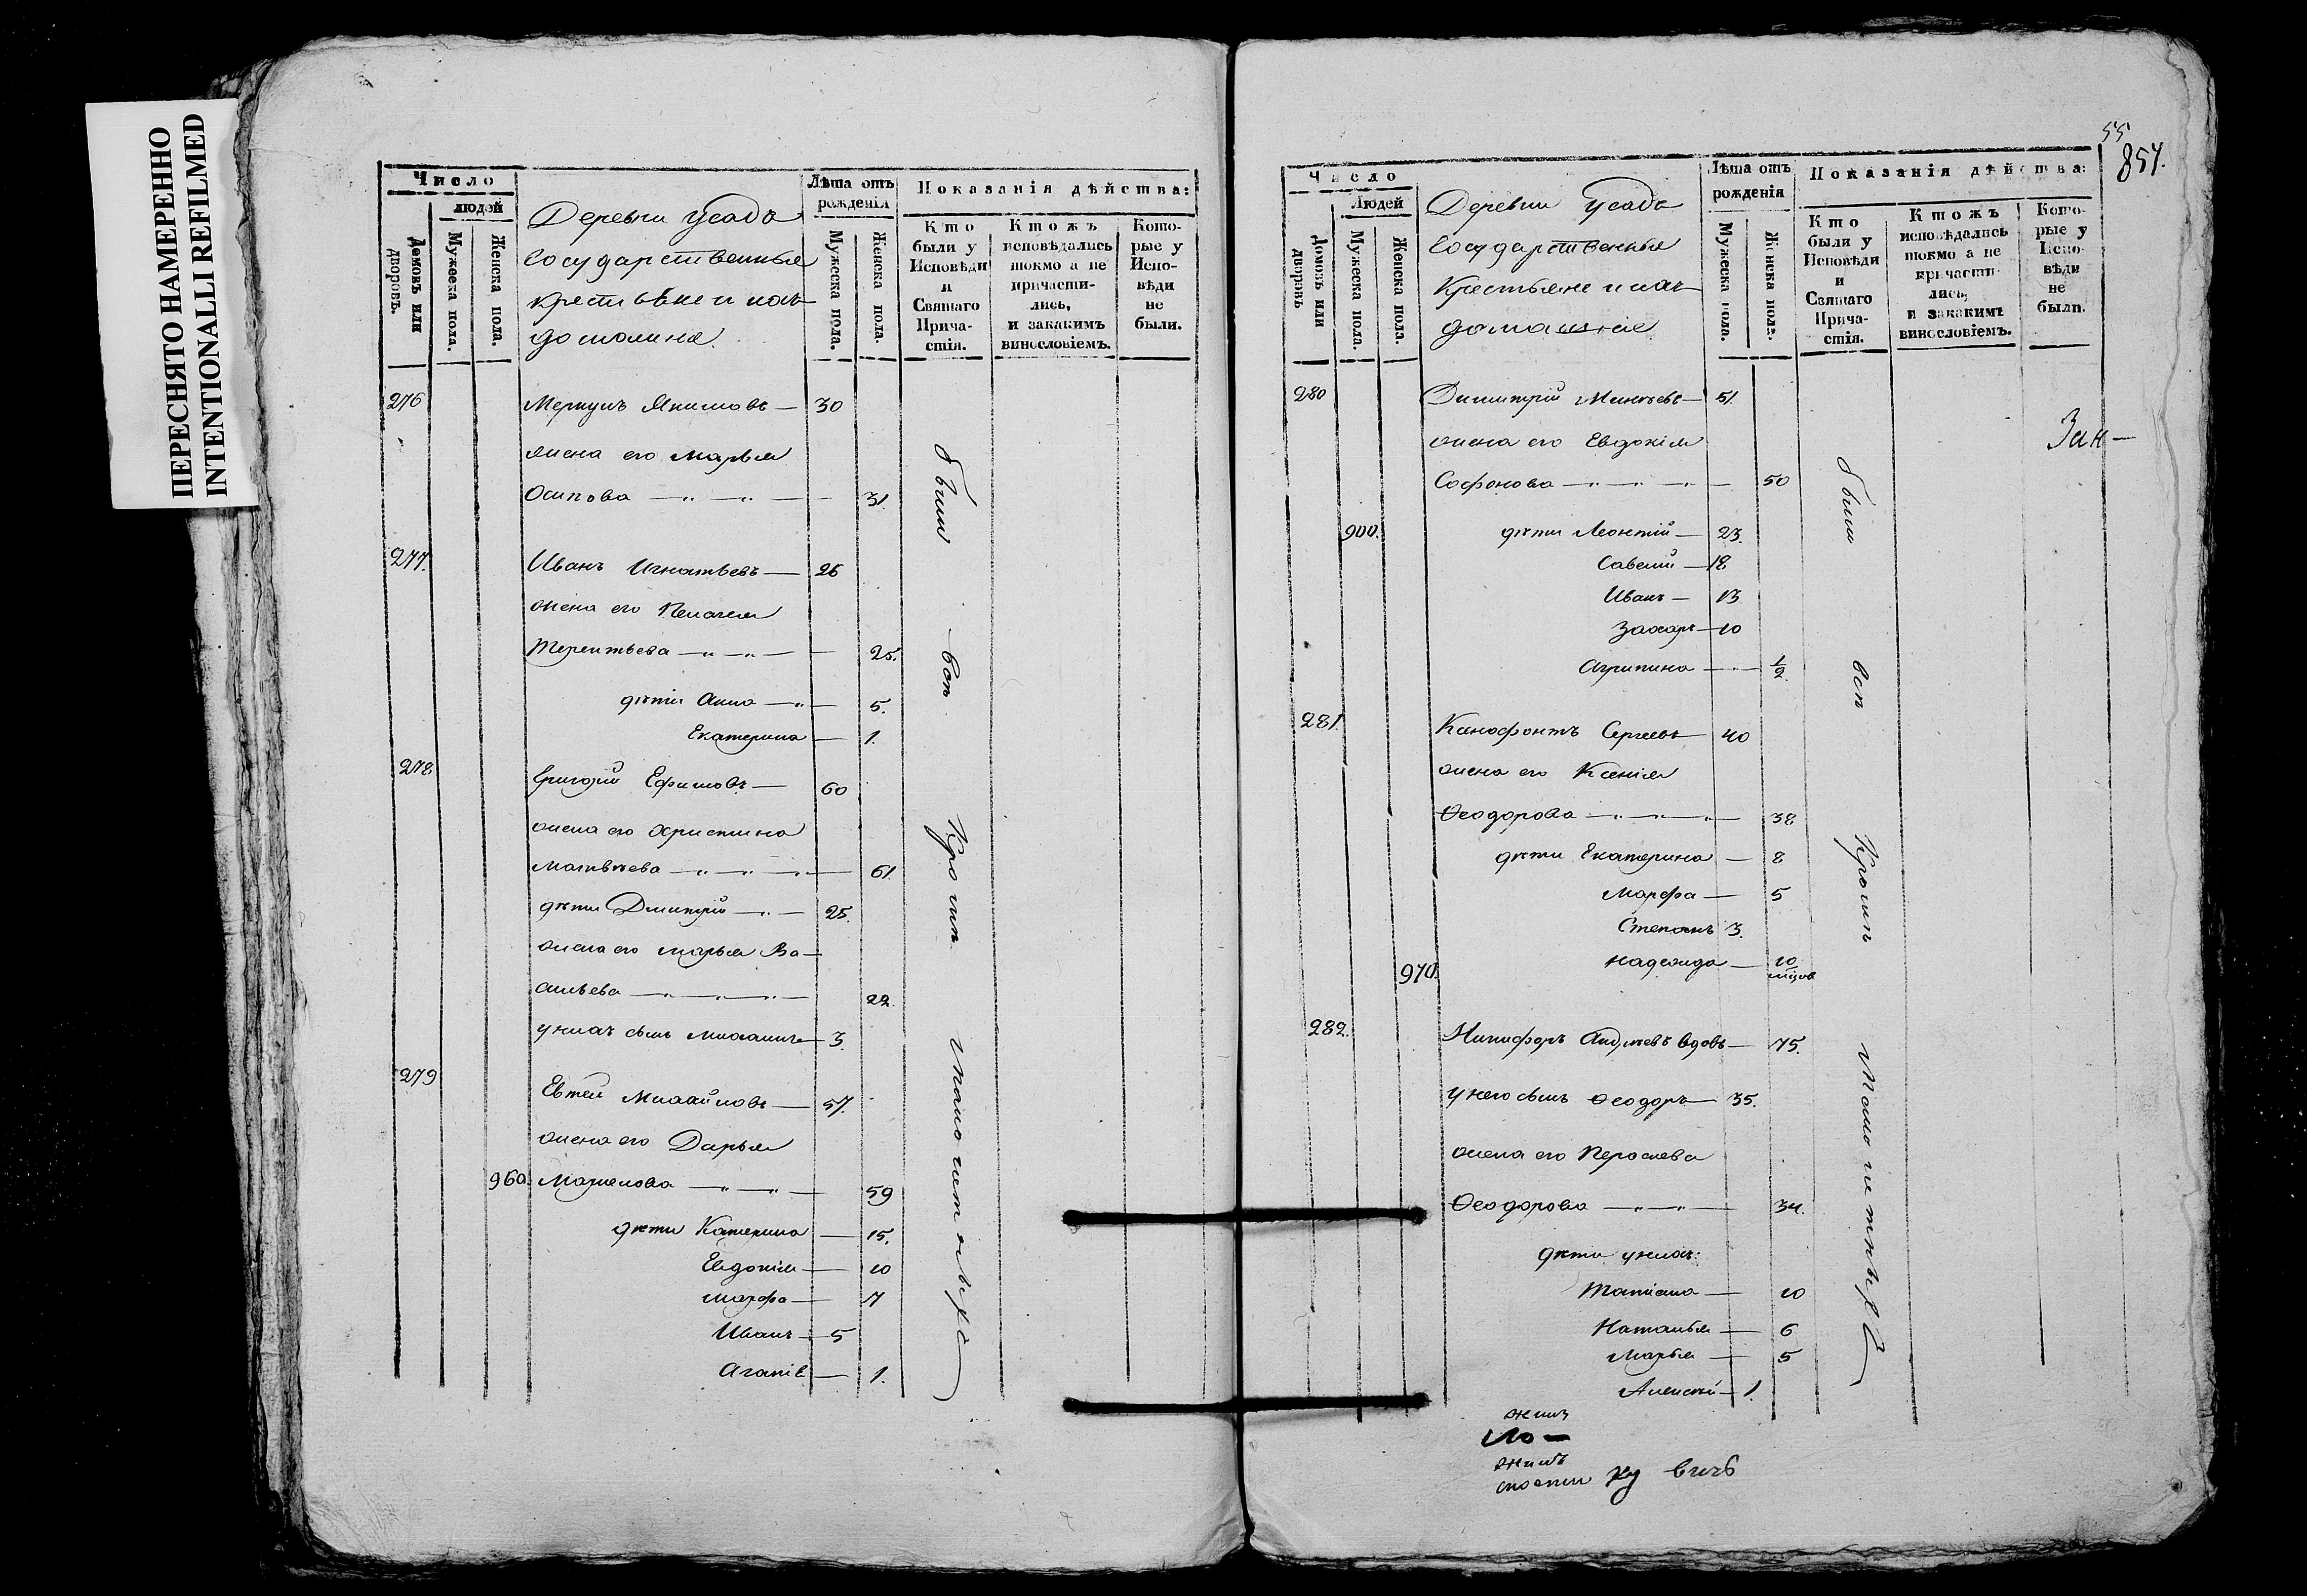 ПЕРЕСНЯТО НАМЕРЕННО
INTENTIONALLI REFILMED
Число
людей
Домовъ или дворовъ.
Мужеска пола.
Женска пола.
Деревни Усадъ
государственныя
крестьяне и ихъ
домашніе.
Лѣта отъ
рожденія
Мужеска пола.
Женска пола.
Показанія дѣйства:
Кто
были у
Исповѣди
и
Святаго
Прича-
стія.
Ктожъ
исповѣдались
токмо а не
причасти-
лись,
и закакимъ
винословіемъ.
Кото-
рые у
Испо-
вѣди
не
были.
276 Меркулъ Якимовъ — 30
жена его Марья
Осипова — 31.
277. Иванъ Игнатьевъ — 26
жена его Пелагея
Терентьева — 25.
дѣти Анна — 5.
Екатерина — 1.
278 Григорій Ефимовъ — 60
жена его Христина
Матвѣева — 61.
дѣти Дмитрій — 25.
жена его Марья Ва-
сильева — 22.
у нихъ сынъ Михаилъ — 3.
279 Евтей Михайловъ — 57.
жена его Дарья
960. — 59
дѣти Катерина — 15.
Евдокія — 10
Марфа — 7
Иванъ — 5
Агапія — 1.
были
всѣ
Кромѣ
малолѣтныхъ
55
857.
Число
Людей
Домовъ или дворовъ
Мужеска пола.
Женска пола.
Деревни Усадъ
Государственныя
Крестьяне и ихъ
домашніе
Лѣта отъ
рожденія
Мужеска пола.
Женска пола.
Показанія дѣйства:
Кто
были у
Исповѣди
и
Святаго
Прича-
стія.
Ктожъ
исповѣдались
токмо а не
причасти-
лись,
и закакимъ
винословіемъ.
Кото-
рые у
Испо-
вѣди
не
были.
280 Димитрій — 51.
жена его Евдокія
Софонова — 50
900. дѣти Леонтій — 23.
Савелій — 18
Иванъ — 13
Захаръ — 10
Агрипина — 1/2
281. Ксенофонтъ Сергеевъ 40
жена его Ксенія
Ѳеодорова — 38
дѣти Екатерина — 8
Марфа — 5
Степанъ 3.
970. Надежда — 10
282. Никифоръ Андреевъ вдовъ — 75.
у него сынъ Ѳеодоръ — 35.
жена его
Ѳеодорова — 34.
дѣти у нихъ:
Татіана — 10
Наталья — 6
Марья — 5
Алексѣй — 1.
были
всѣ
Кромѣ
малолѣтныхъ